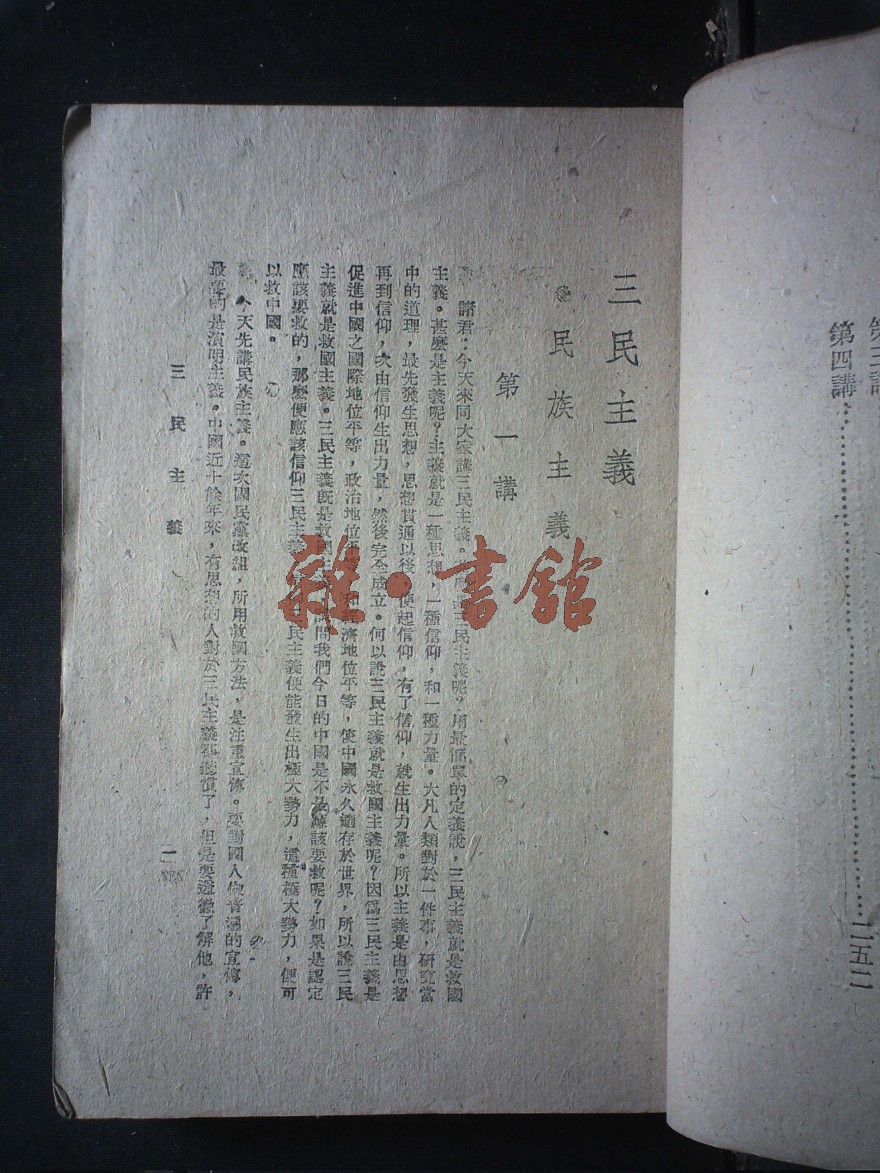 第四講……………………二五二
三民主義
民族主義
第一講
諸君：今天來同大家講三民主義。三民主義呢？用最簡單的定義說，三民主義就是救國
主義。甚麽是主義呢？主義就是一種思想，一種信仰，和一種力量。大凡人類對於一件事，研究當
中的道理，最先發生思想，思想貫通以後，便起信仰，有了信仰，就生出力量。所以主義是由思想
再到信仰，次由信仰生出力量，然後完全成立。何以說三民主義就是救國主義呢？因爲三民主義是
促進中國之國際地位平等，政治地位平濟地位平等，使中國永久適存於世界，所以說三民
主義就是救國主義。三民主義旣是救國主問我們今日的中國是不是應該要救呢？如果是認定
應該要救的，那麽便應該信仰三民主義民主義便能發生出極大勢力，這種極大勢力，便可
以救中國。
今天先講民族主義。這次國民黨改組，所用救國方法，是注重宣傳。要對國人做普遍的宣傳，
最要的是演明主義。中國近十餘年來，有思想的人對於三民主義都聽慣了，但是要透徹了解他，許
三民主義
一
雜·書館